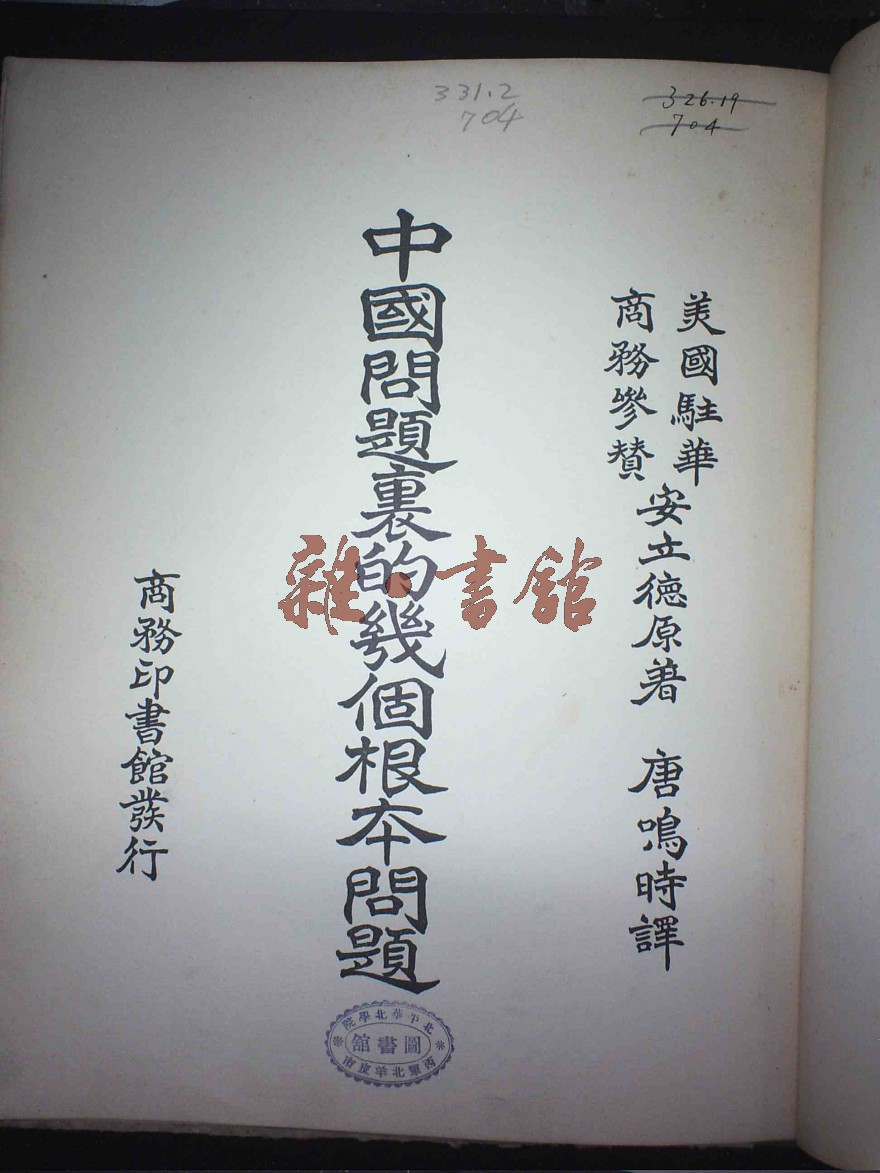 331.2
704
326.19
704
美國駐華
商務參贊
安立德原著 唐鳴時譯
中國問題裏的幾個根本問題
商務印書館發行
雜·書館
北平華北學院
圖書館
西單北羊皮市